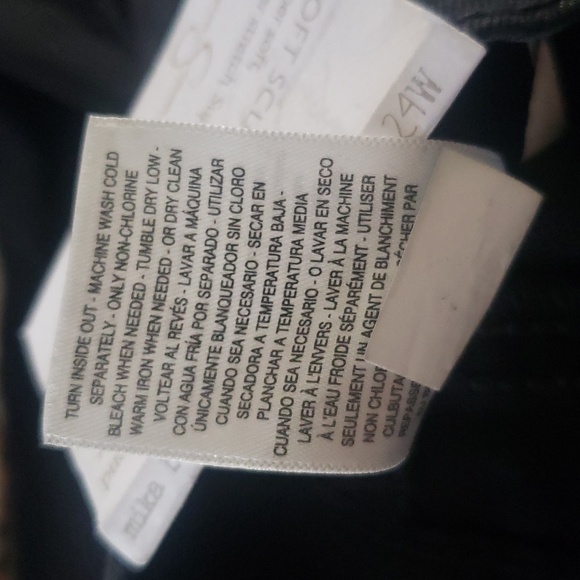 TURN INSIDE OUT - MACHINE WASH COLD
SEPARATELY - ONLY NON-CHLORINE
BLEACH WHEN NEEDED - TUMBLE DRY LOW -
WARM IRON WHEN NEEDED - OR DRY CLEAN
VOLTEAR AL REVÉS - LAVAR A MÁQUINA
CON AGUA FRÍA POR SEPARADO - UTILIZAR
ÚNICAMENTE BLANQUEADOR SIN CLORO
CUANDO SEA NECESARIO - SECAR EN
SECADORA A TEMPERATURA BAJA -
PLANCHAR A TEMPERATURA MEDIA
CUANDO SEA NECESARIO - O LAVAR EN SECO
LAVER À L'ENVERS - LAVER À LA MACHINE
À L'EAU FROIDE SÉPARÉMENT - UTILISER
SEULEMENT UN AGENT DE BLANCHIMENT
NON CHLOR
SÉCHER PAR
CULBUTA
24W
OFT SCU
mika